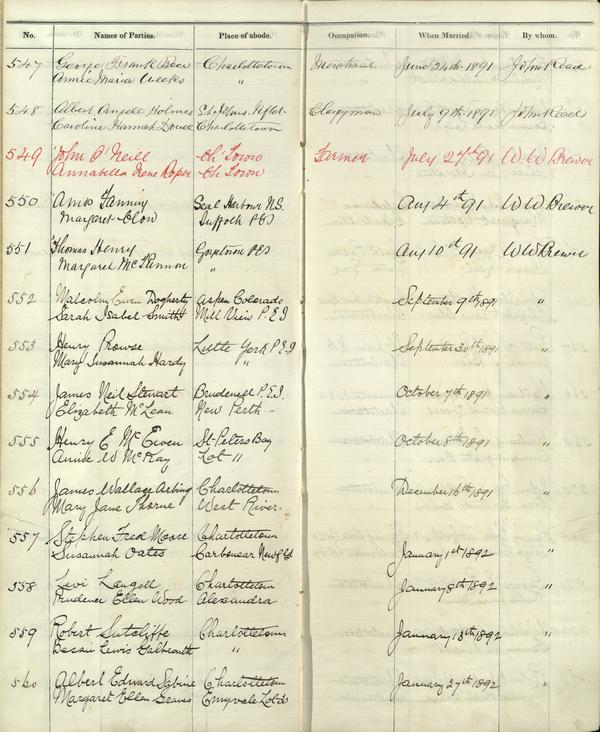 No. Names of Parties. Place of abode. Occupation. When Married. By whom.
547 George Frank Charlottetown Merchant June 24th 1891 John Read
Annie Maria Weeks "
548 Albert Angell Holmes Nfld. Clergyman July 9th 1891 John Read
Caroline Hannah Charlottetown
549 John O'Neill Ch'Town Farmer July 27th 91 W W Brewer
Annabella Irene Roper Ch Town
550 Amos Fanning Seal Harbour N.S. Aug 4th 91 W W Brewer
Margaret Clow Suffolk PEI
551 Thomas Henry Georgetown PEI Aug 10th 91 W W Brewer
Margaret McKinnon "
552 Malcolm Ewen Dogherty Aspen Colorado September 9th 1891 "
Sarah Isabel Smith Mill View P.E.I
553 Henry Prowse Little York P.E.I September 30th 1891 "
Mary Susannah Hardy "
554 James Neil Stewart Brudenell P.E.I. October 7th 1891 "
Elizabeth McLean New Perth "
555 Henry E McEwen St Peters Bay October 8th 1891 "
Annie W McKay Lot "
556 James Wallace Charlottetown December 16th 1891 "
Mary Jane Thorne West River
557 Stephen Fred Moore Charlottetown
Susannah Oates Carbonear Newfld January 1st 1892 "
558 Levi Langell Charlottetown January 8th 1892 "
Prudence Ellen Wood Alexandra
559 Robert Sutcliffe Charlottetown January 13th 1892 "
Bessie Lewis Galbreath "
560 Albert Edward Sabine Charlottetown January 27th 1892 "
Margaret Ellen Graves Emyvale